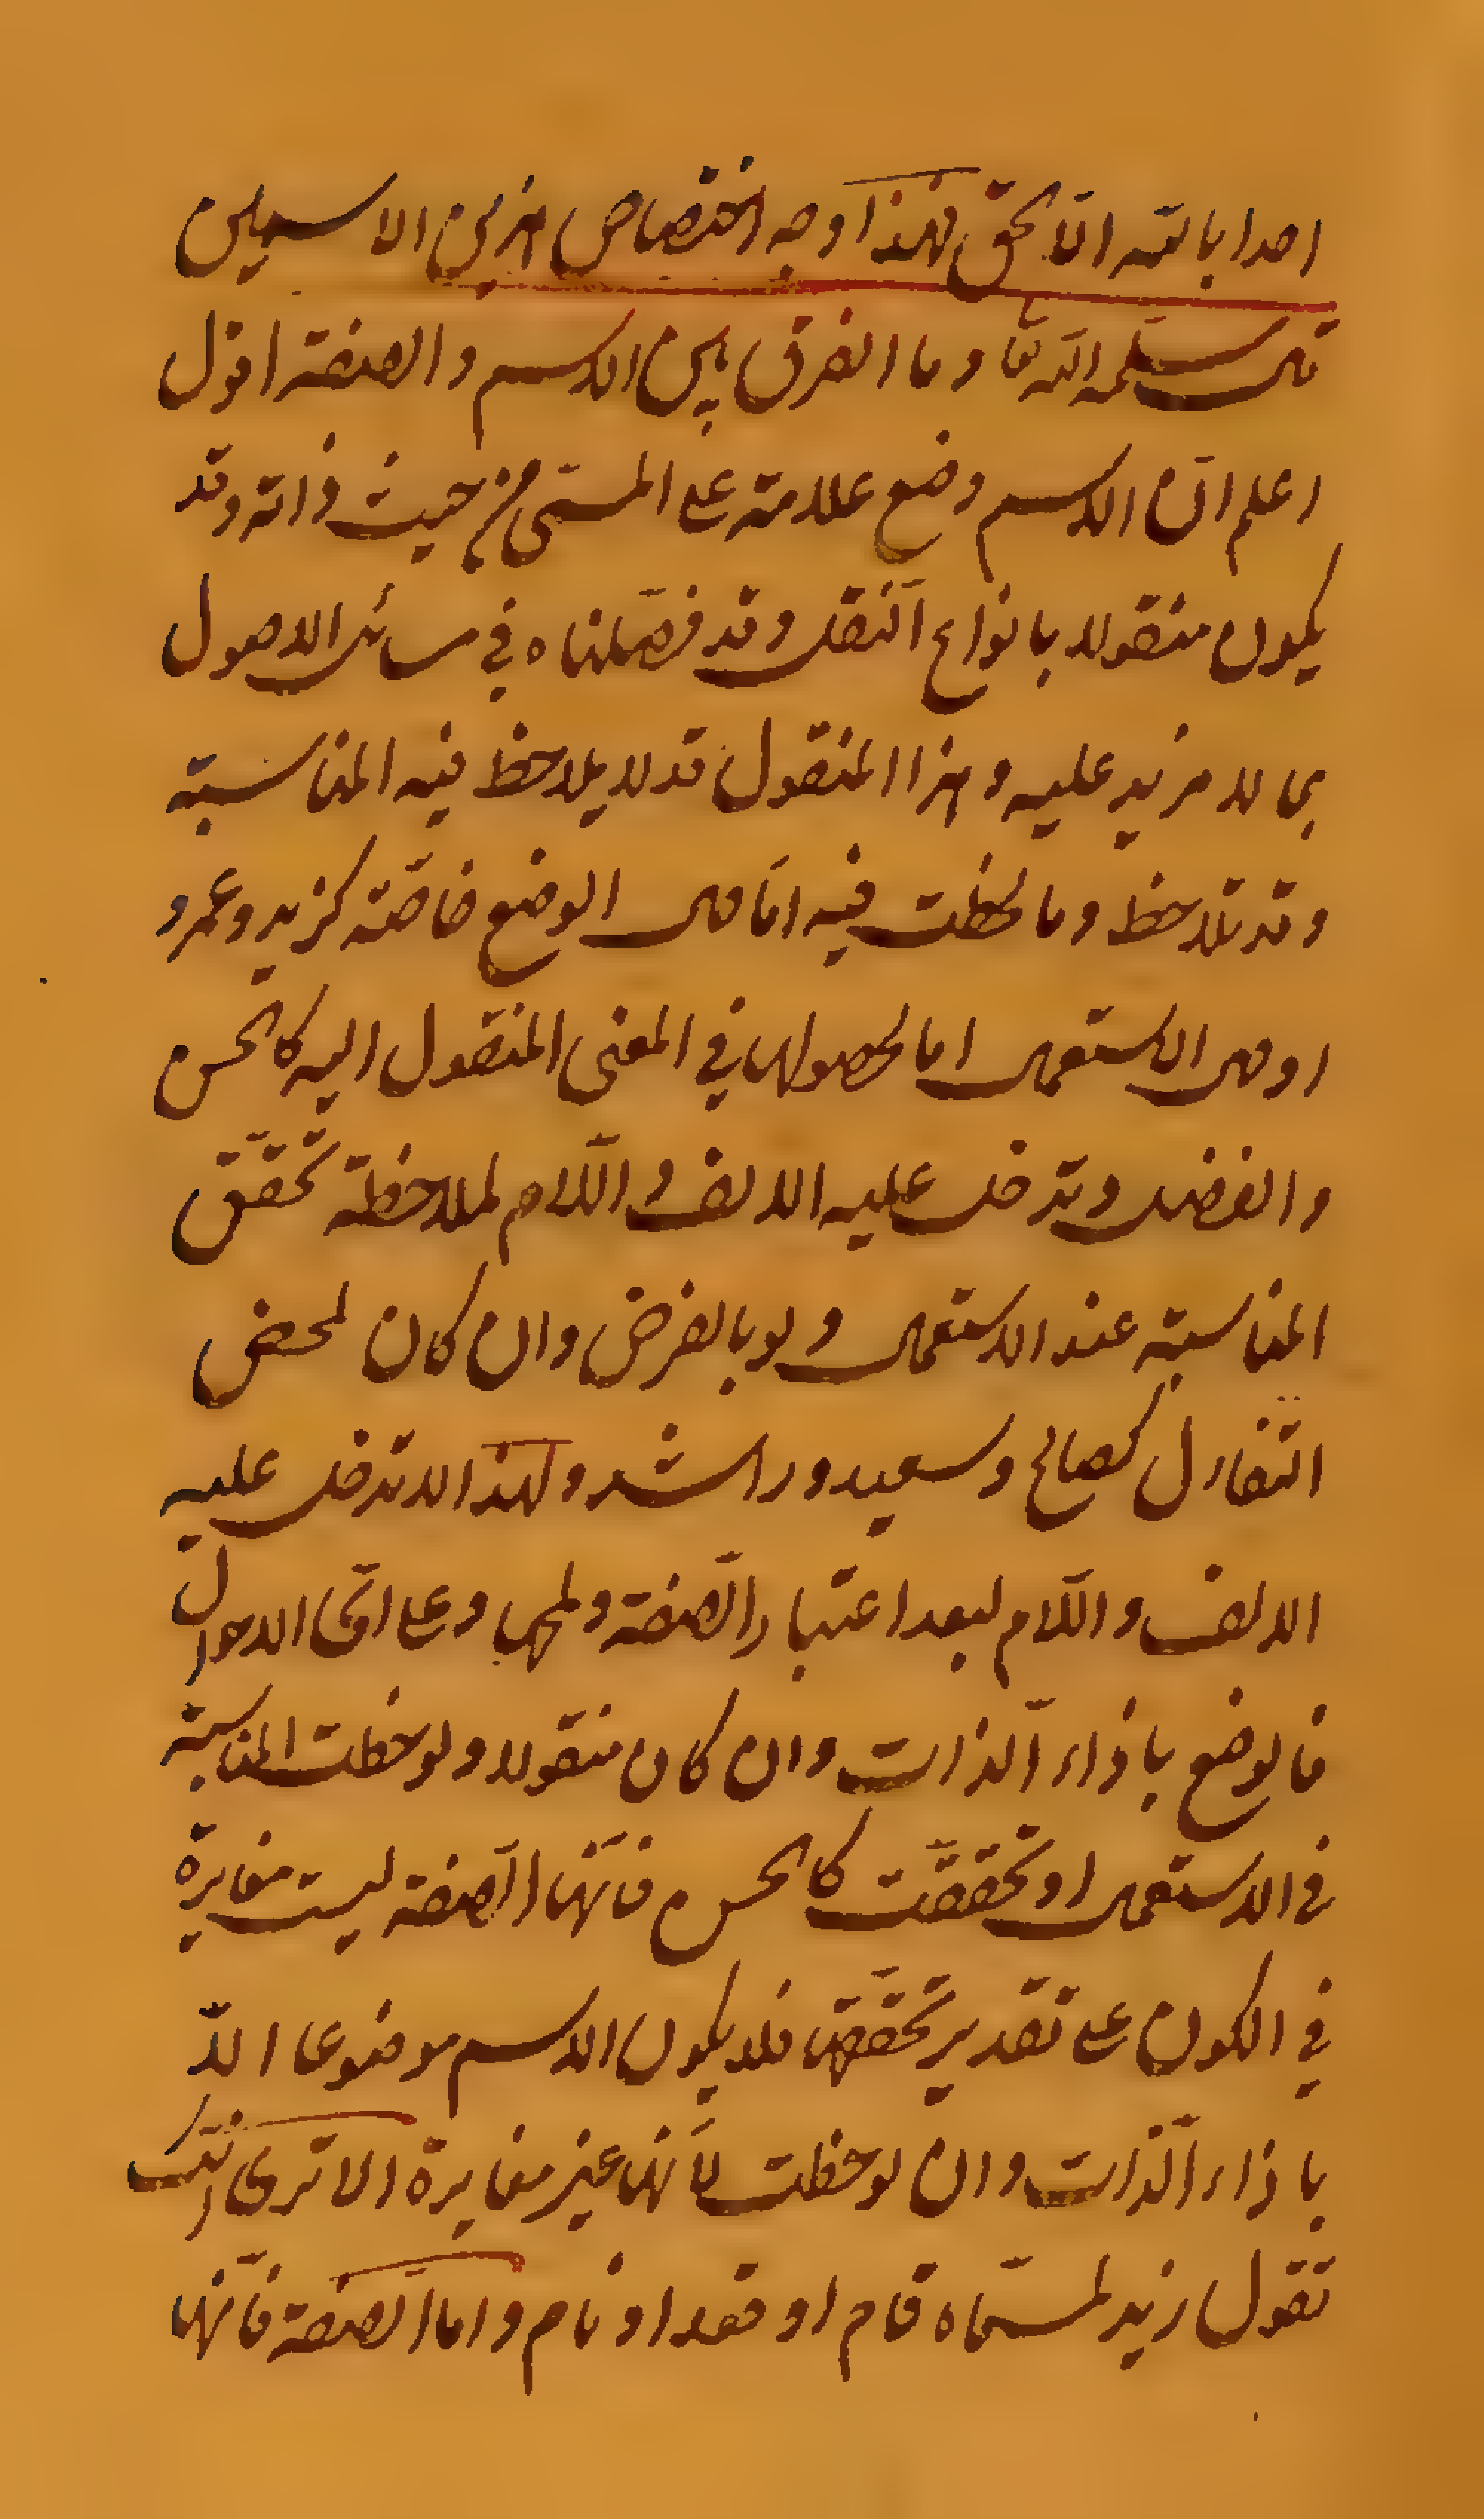 احدا بالله الا بحق فهذا وجه اختصاص هذين الاسمين
قال سلمه الله تعا وما الفرق بين الاسم والصفة اقول
اعلم انّ الاسم وضع علامة على المسمّى من حيث ذاته وقد
يكون منقولا بانواع النّقل وقد فصّلناه في مسائل الاصول
بما لا مزيد عليه وهذا المنقول قد لا يلاحظ فيه المناسبة
وقد تلاحظ وما لحظت فيه امّا حال الوضع خاصّة كزيد وعمرو
او حال الاستعمال اما لحصولها في المعنى المنقول اليه كالحسن
والفضل وتدخل عليه الالف واللّام لملاحظة تحقّق
المناسبة عند الاستعمال ولو بالفرض وان كان لمحض
التفاءل كصالح وسعيد وراشد ولهذا لا تدخل عليه
الالف واللّام لبعد اعتبار الصّفة ولمحها وعلى اىّ الاحوال
فالوضع باذاء الذّات وان كان منقولا ولوحظت المناسبة
في الاستعمال او تحقّقت كالحسن فانّها الصّفة ليست مغايرة
في الكون على تقدير تحقّقها فلا يكون الاسم موضوعا الّا
باذاء الذّات وان لوحظت لأنها غير مغايرة الا ترى انّك
تقول زيد لمسمّاه قام او قعد او نام واما الصّفة فانّها